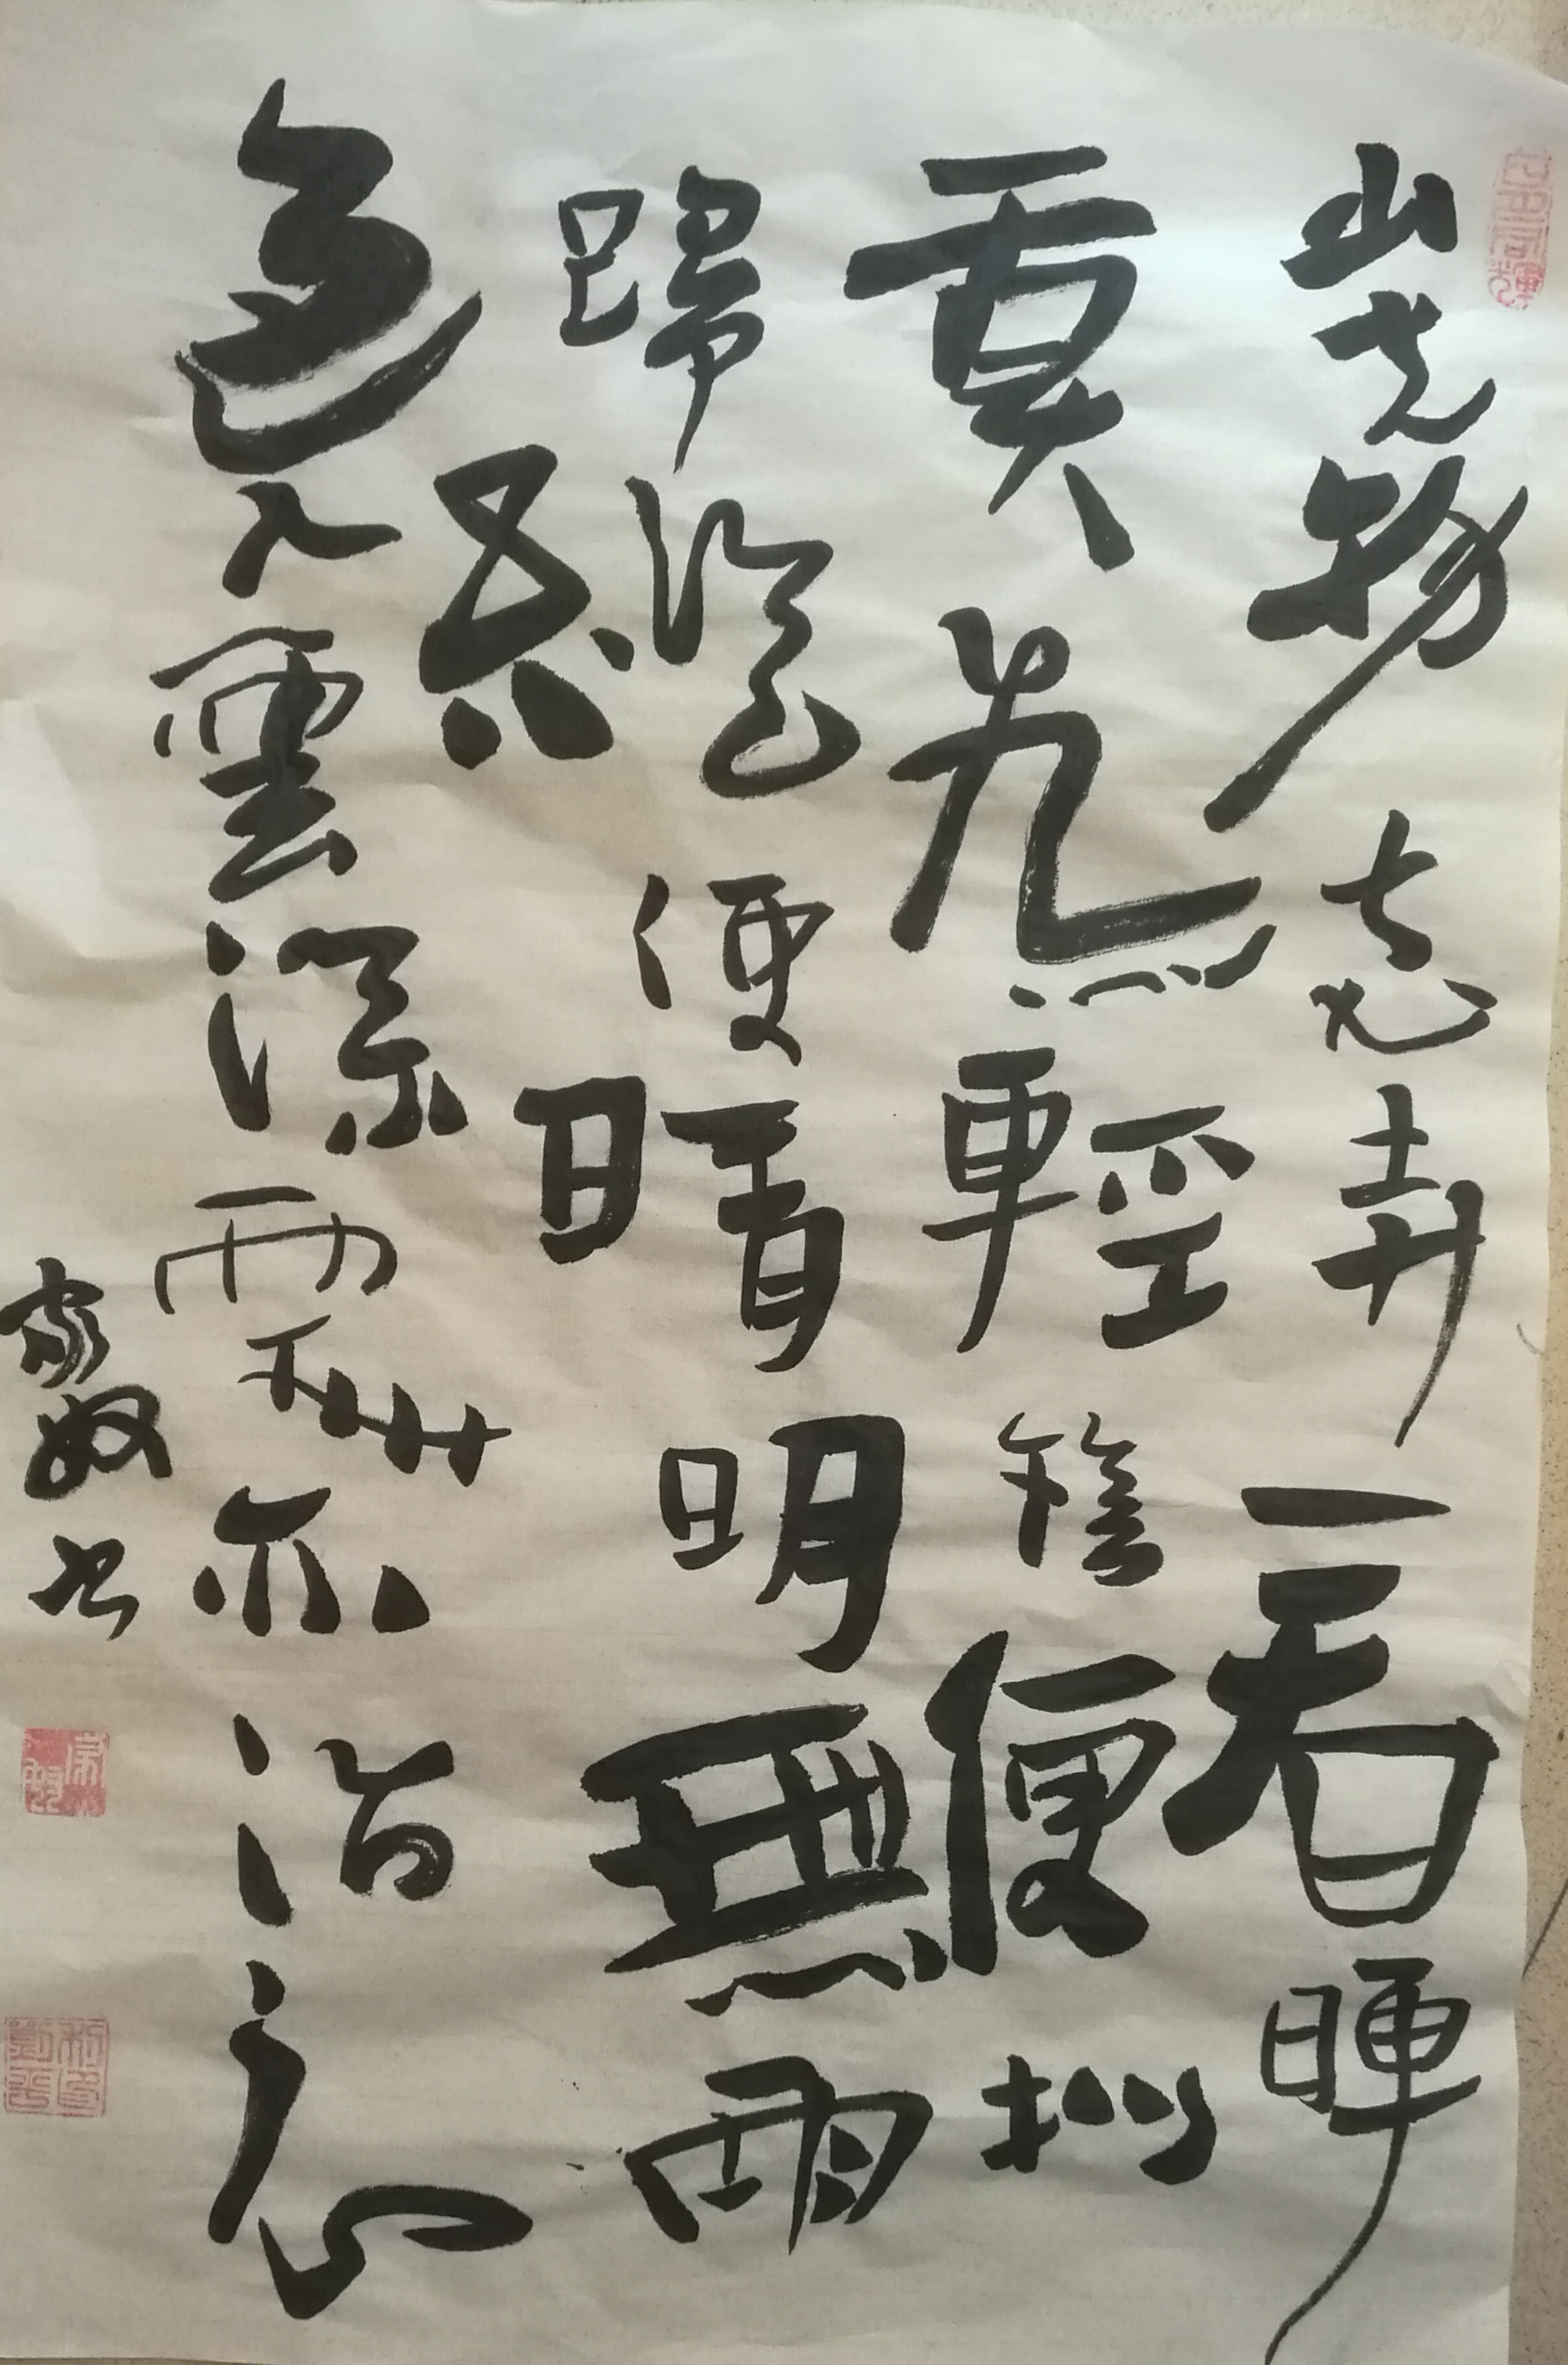 山光物態弄春暉
莫為輕陰便擬
歸縱使晴明無雨
色入雲深處亦沾衣